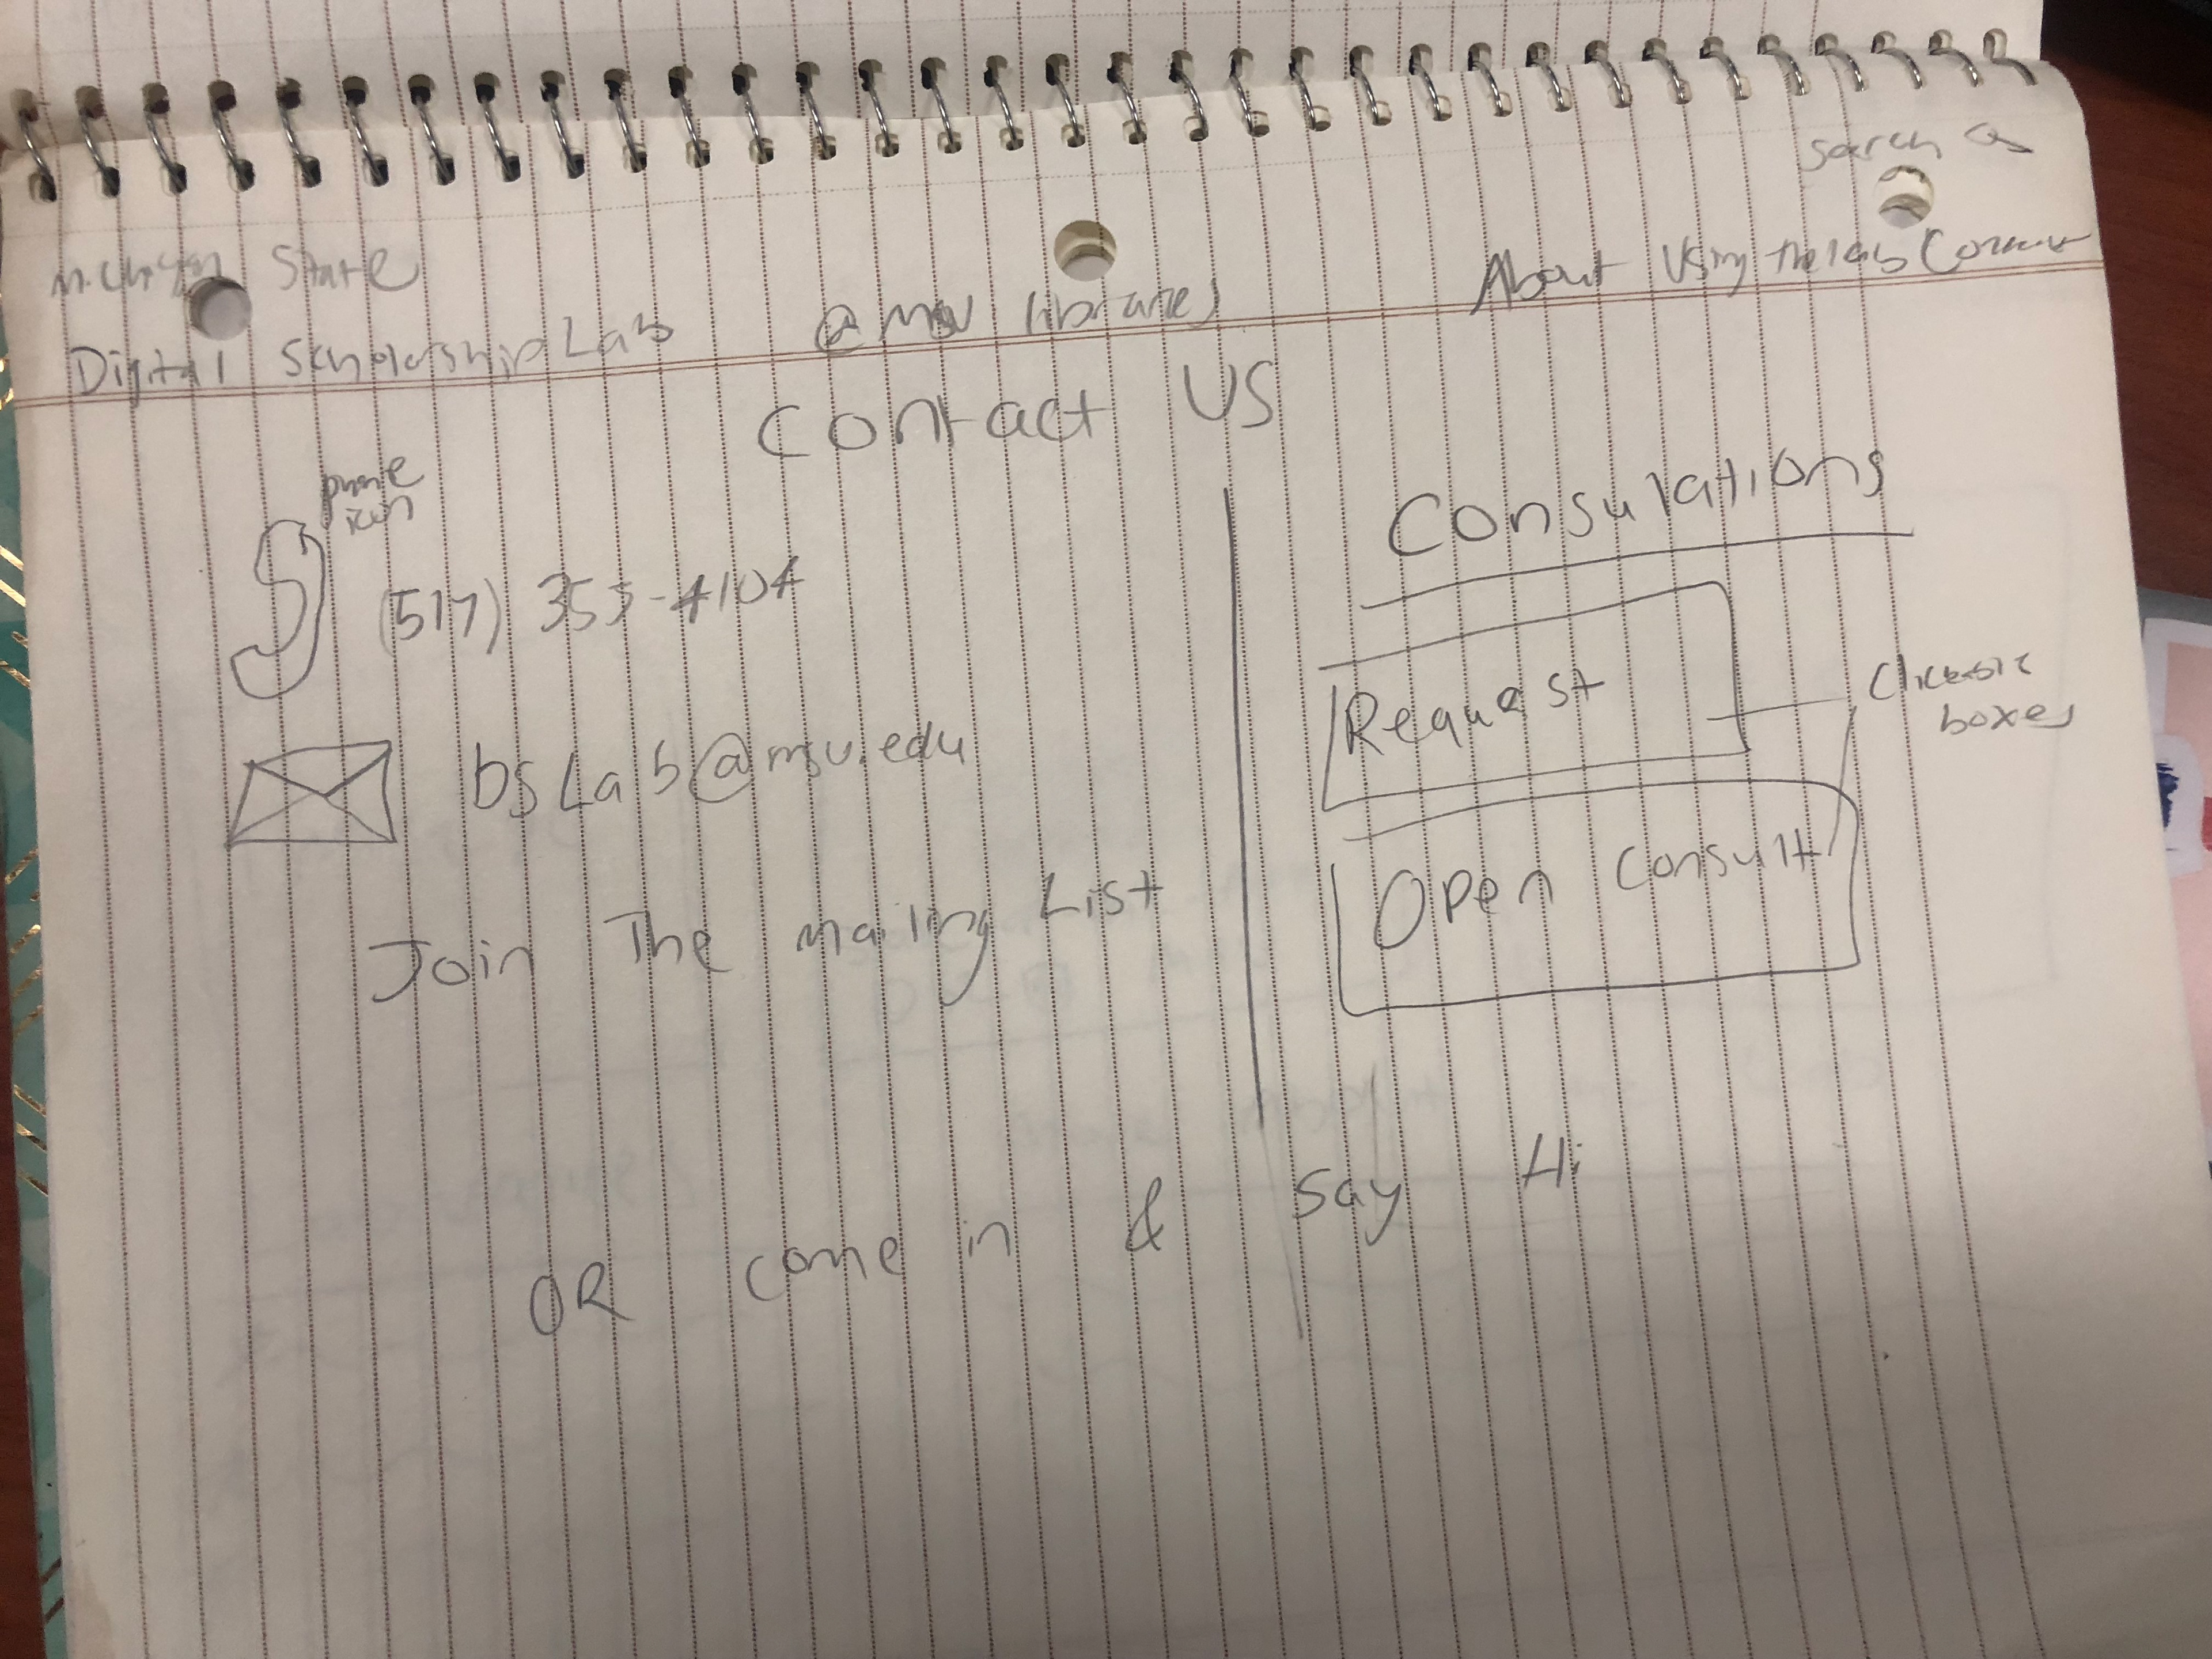 Search
Michigan State
Digital Scholarship Lab @ MSU libraries About Using the lab
Contact US
phone icon
(517) 355-4104
DSLab@msu.edu
Join The Mailing List
OR come in & Say Hi
Consulations
Request
Open Consult
boxes